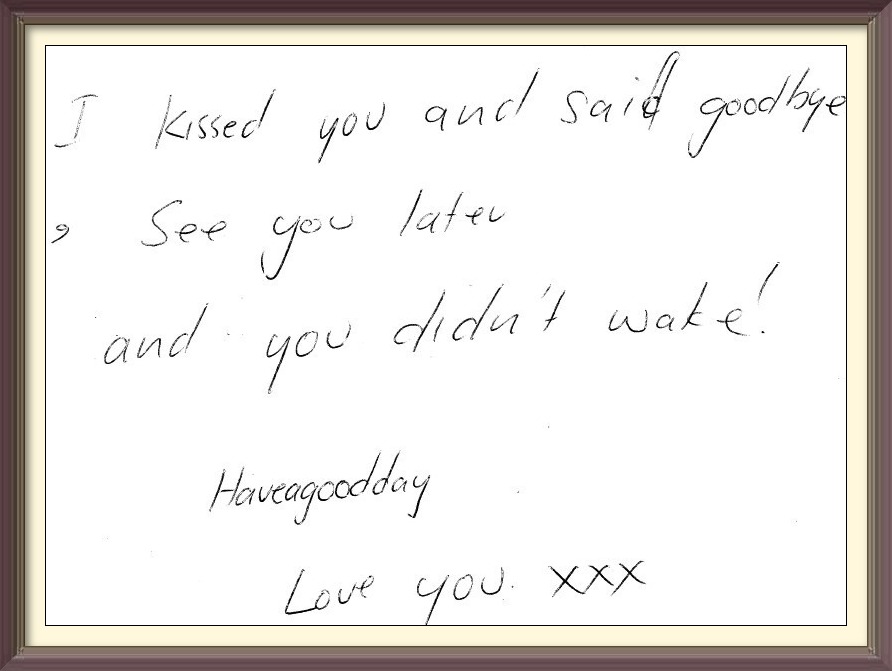 I kissed you and said goodbye
, See you later
and you didn't wake!
Haveagoodday
Love you. xxx